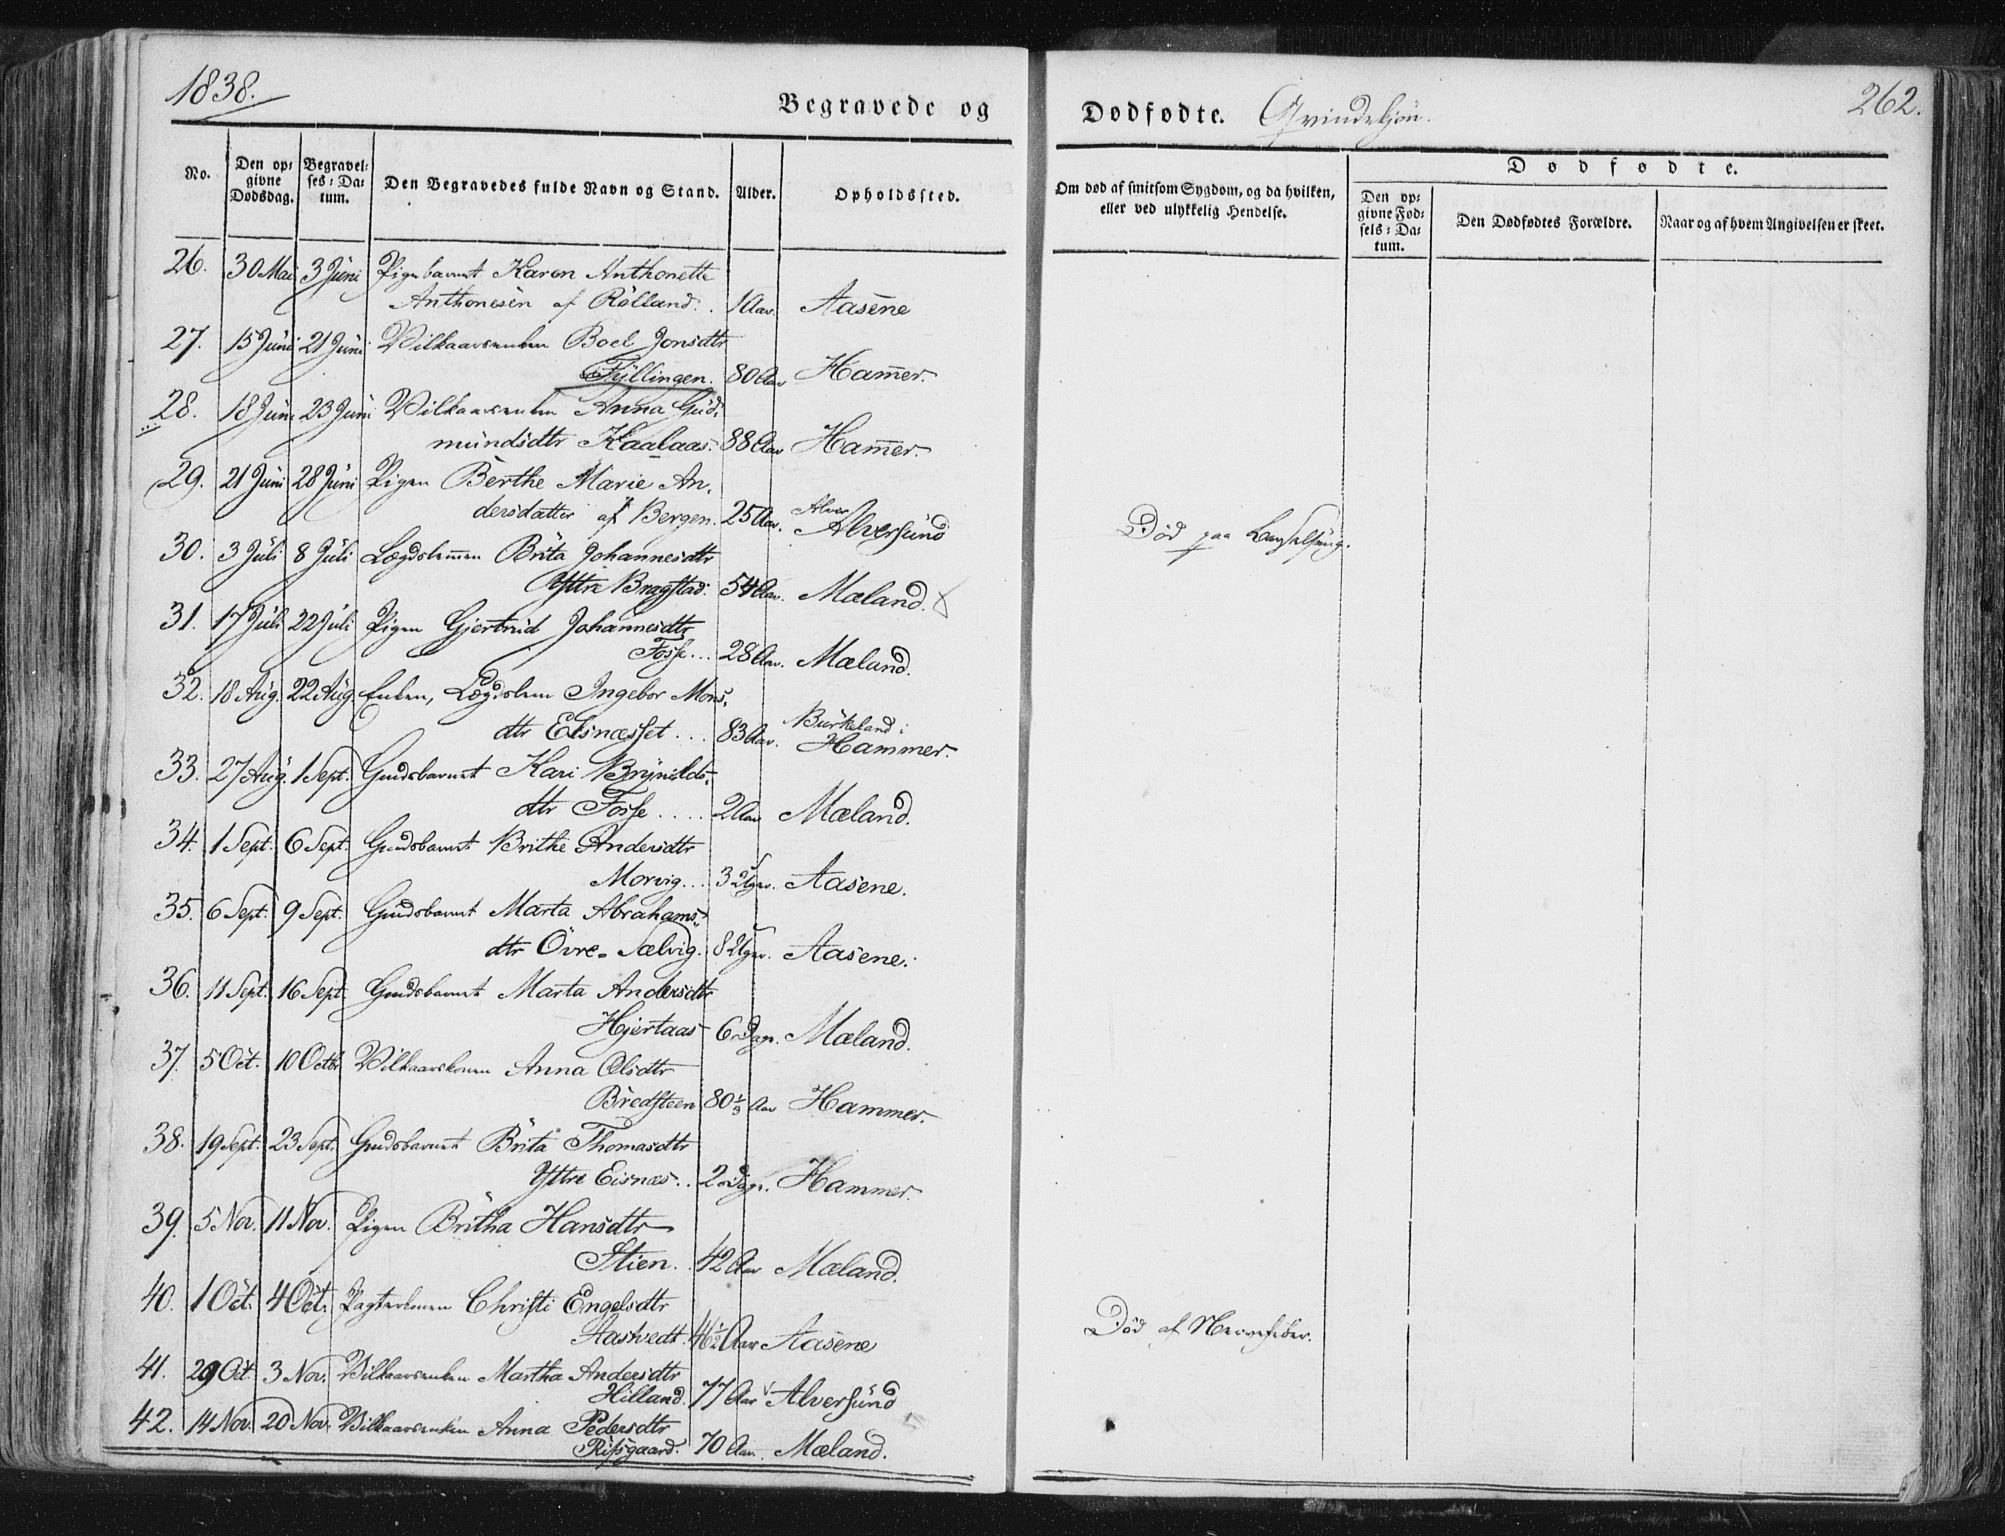 1838.
Begravede og
Dødfødte. Qvindekjøn.
262.
No.
Den op=
givne
Dødsdag.
Begravel=
ses=Da=
tum.
Den Begravedes fulde Navn og Stand.
Alder.
Opholdssted.
Om død af smitsom Sygdom, og da hvilken,
eller ved ulykkelig Hendelse.
Dødfødte.
Den op=
givne Fød=
sels=Da=
tum.
Den Dødfødtes Forældre.
Naar og af hvem Angivelsen er skeet.
26. 30 Mai 3 Juni Pigebarnet Karen Anthonette
Anthonesen af Rölland. 1 Aar. Aasene
27. 15 Juni 21 Juni Vilkaarsenken Boel Jonsdtr
Fyllingen. 80 Aar Hamer.
28. 18 Juni 23 Juni Vilkaarsenken Anna Gud=
mundsdtr Kaalaas. 88 Aar Hamer.
29. 21 Juni 28 Juni Pigen Berthe Marie An=
dersdatter af Bergen. 25 Aar. Alver Alversund Død paa Barselseng.
30. 3 Juli 8 Juli Lægdslemen Brita Johannesdtr
Yttre Bragstad. 54 Aar. Mæland.
31. 17 Juli 22 Juli Pigen Gjertrud Johannesdtr
Fosse... 28 Aar. Mæland.
32. 18 Aug. 22 Aug. Enken, Lægdslem Ingebor Mons=
dtr Eisnæsset... 83 Aar. Burkeland i
Hammer.
33. 27 Aug. 1 Sept. Gaardsbarnet Kari Brynilds=
dtr Fosse.... 2 Aar Mæland.
34. 1 Sept. 6 Sept. Gaardsbarnet Brithe Andersdtr
Morvig... 3 Uger. Aasene.
35. 6 Sept. 9 Sept. Gaardsbarnet Marta Abrahams=
dtr Övre-Sælvig. 8 Uger. Aasene.
36. 11 Sept. 16 Sept. Gaardsbarnet Marta Andersdtr
Hjertaas 6 Dage. Mæland.
37. 5 Oct. 10 Octbr Vilkaarskonen Anna Olsdtr
Bredsteen 80 1/3 Aar Hammer.
38. 19 Sept. 23 Sept. Gaardsbarnet Brita Thomasdtr
Yttre Eisnæs.. 2 Dage. Hammer.
39. 5 Nov. 11 Nov. Pigen Britha Hansdtr
Stien. 42 Aar Mæland.
40. 1 Oct. 4 Oct. Pagterkonen Christi Engelsdtr
Aastvedt. 46 1/2 Aar Aasene Død af Nervefeber.
41. 29 Oct. 3 Nov. Vilkaarsenken Martha Andersdtr
Hilland. 77 Aar Alversund
42. 14 Nov. 20 Nov. Vilkaarsenken Anna Pedersdtr
Risgaard. 70 Aar. Mæland.